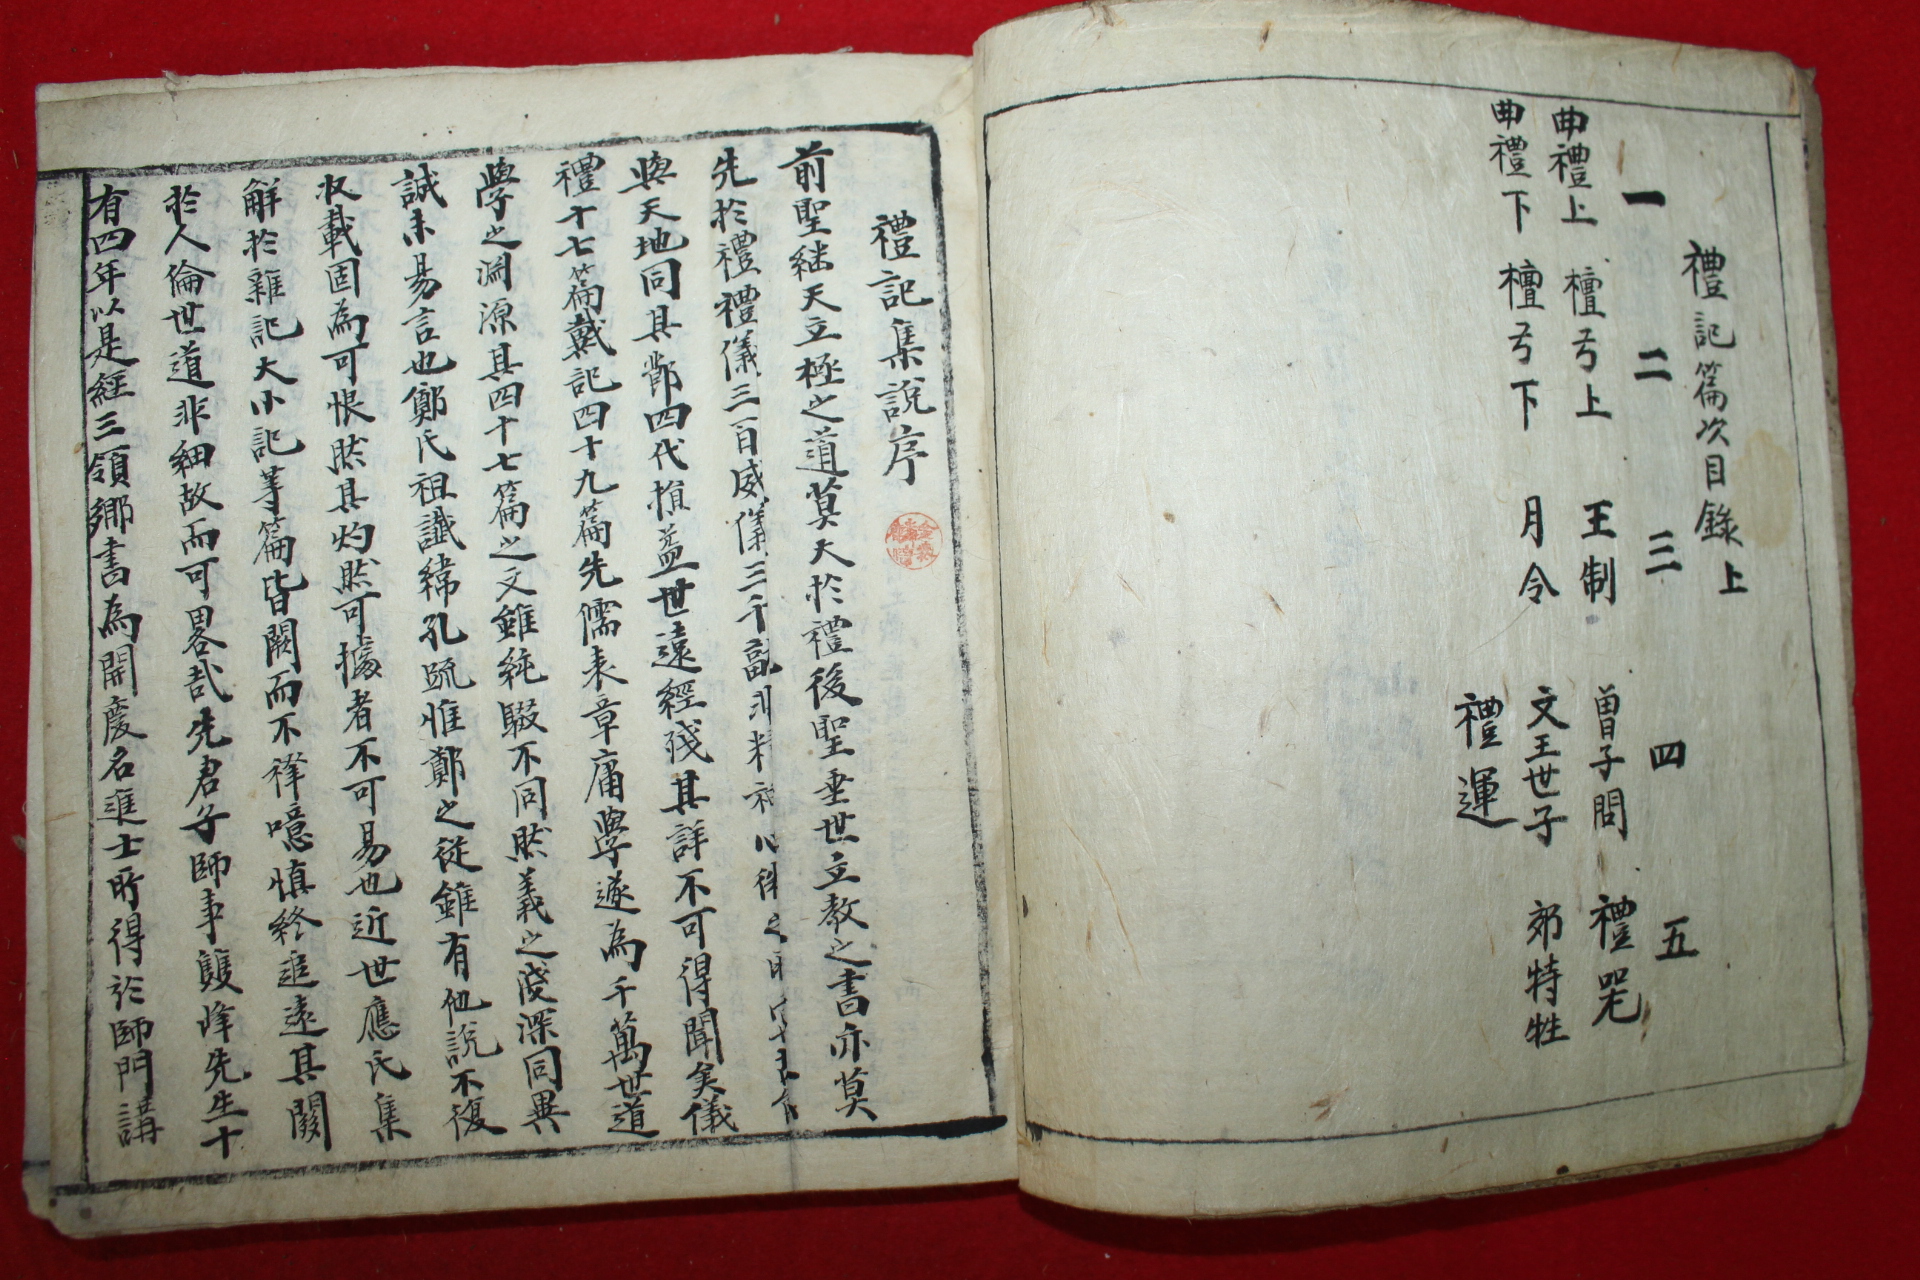 禮記篇次目錄上
一 二 三 四 五
曲禮上 檀弓上 王制 曾子問 禮咒
曲禮下 檀弓下 月令 文王世子 郊特牲
禮運
禮記集說序
前聖継天立極之道莫大於禮後聖垂世立教之書亦莫
先於禮禮儀三百威儀三千
與天地同其節四代損益世遠經殘其詳不可得聞矣儀
禮十七篇戴記四十九篇先儒表章庸學遂為千萬世道
學之淵源其四十七篇之文雖純駁不同然義之淺深同異
誠未易言也鄭氏祖讖緯孔疏惟鄭之従雖有他說不復
収載固為可恨然其灼然可據者不可易也近世應氏集
解於雜記大小記等篇皆闕而不釋噫慎終追遠其關
於人倫世道非細故而可畧哉先君子師事雙峰先生十
有四年以是經三領鄉書為開慶名進士所得於師門講